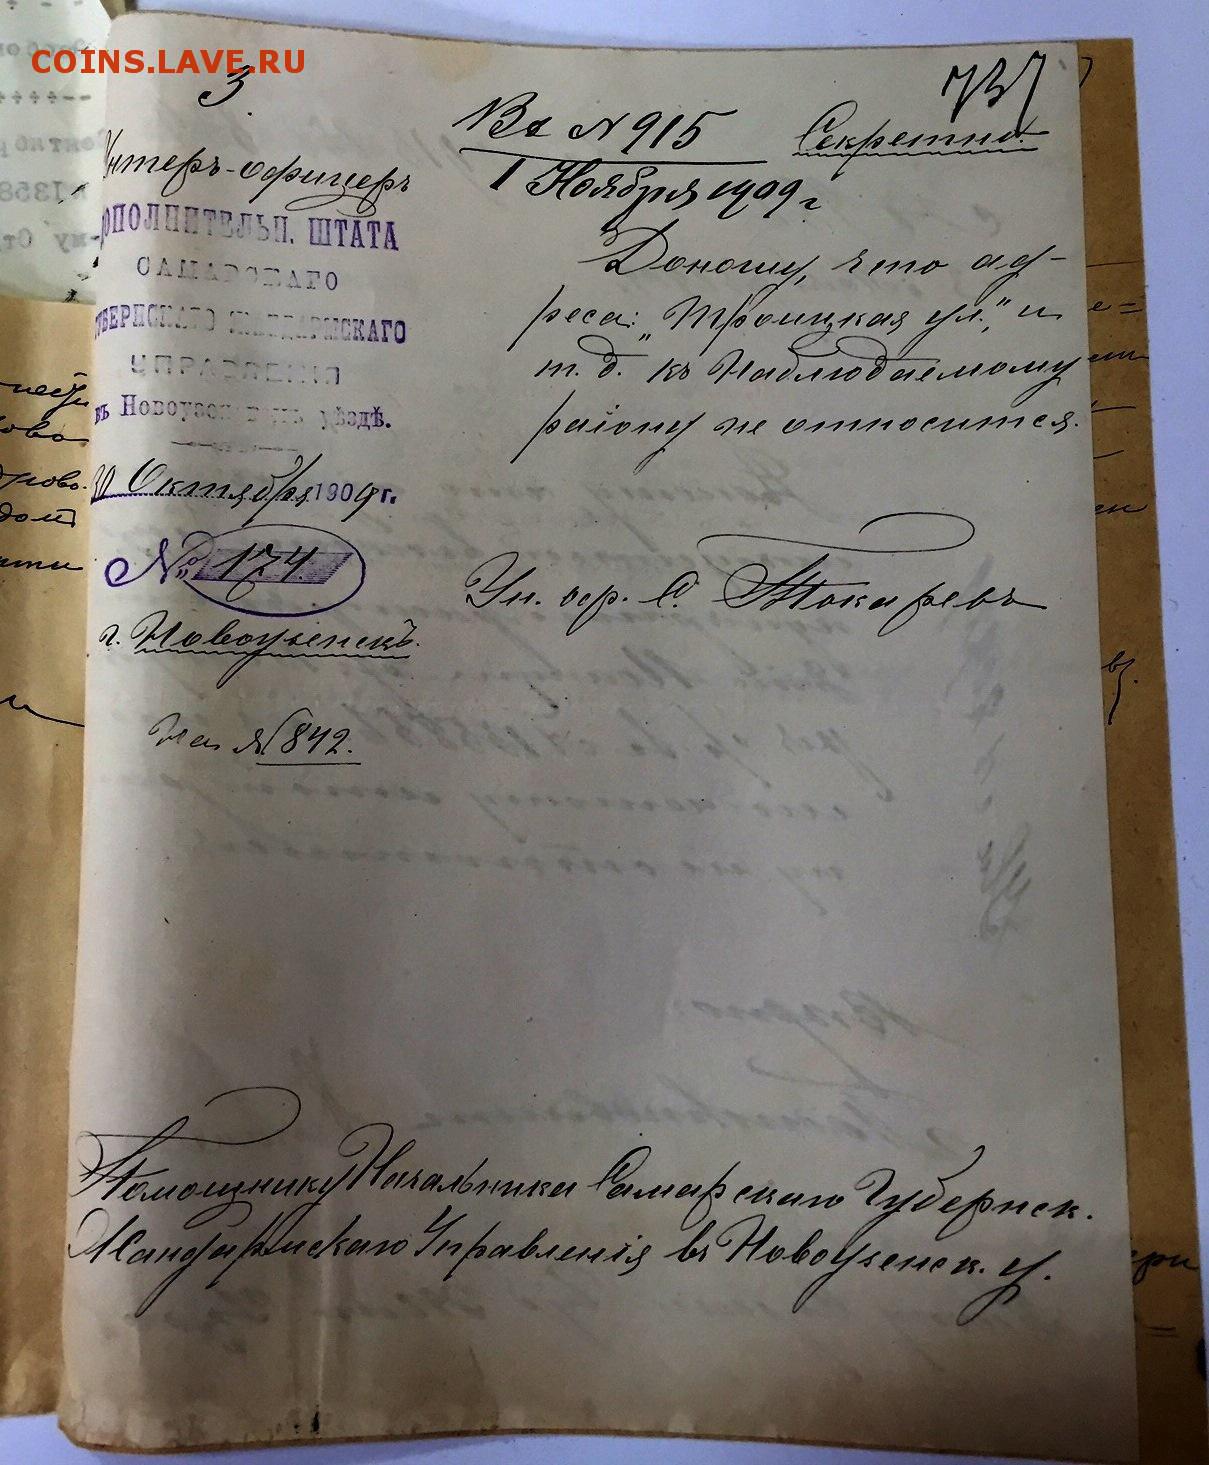 COINS.LAVE.RU
3.
737
Вх № 915
Секретно.
1 Ноября 1909 г
Унтеръ-офицеръ
ДОПОЛНИТЕЛЬН. ШТАТА
САМАРСКАГО
ГУБЕРНСКАГО ЖАНДАРМСКАГО
УПРАВЛЕНІЯ
въ Новоузенскомъ уѣздѣ.
30 Октября 1909 г.
№ 174.
г. Новоузенскъ.
На № 842.
Доношу, что ад-
реса: "Троицкая ул.", и
т. д. къ наблюдаемому
району не относится.
Ун. оф. С. Токаревъ
Помощнику Начальника Самарскаго Губернск.
Жандармскаго Управленія въ Новоузенск. у.